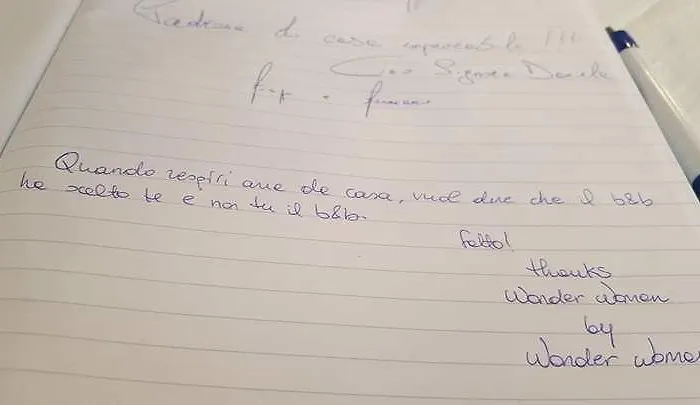 Padrona di casa impeccabile !!!
Ciao Signora
Quando respiri aria de casa, vuol dire che il b&b
ha scelto te e non tu il b&b.
fatto!
thanks
Wonder women
by
Wonder wome